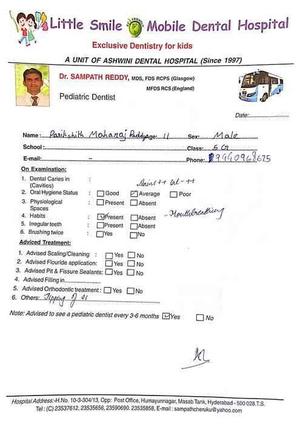 Little Smile Mobile Dental Hospital
Exclusive Dentistry for kids
A UNIT OF ASHWINI DENTAL HOSPITAL (Since 1997)
Dr. SAMPATH REDDY, MDS, FDS RCPS (Glasgow)
MFDS RCS (England)
Pediatric Dentist
Date:
Name: Parikshith Maharaj 11 Sex: Male
School: Class: 5 G
E-mail: Phone:
On Examination:
1. Dental Caries in (Cavities)
2. Oral Hygiene Status : Good Average Poor
3. Physiological Spaces : Present Absent
4. Habits : Present Absent - Mouthbreathing
5. Irregular teeth : Present Absent
6. Brushing twice : Yes No
Adviced Treatment:
1. Advised Scaling/Cleaning : Yes No
2. Advised Flouride application: Yes No
3. Advised Pit & Fissure Sealants: Yes No
4. Advised Filling in
5. Advised Orthodontic treatment : Yes No
6. Others:
Note: Advised to see a pediatric dentist every 3-6 months Yes No
Hospital Address:-H.No. 10-3-304/13, Opp: Post Office, Humayunnagar, Masab Tank, Hyderabad - 500 028.T.S.
Tel: (C) 23537612, 23535656, 23590690. 23535858, E-mail : sampathcheruku@yahoo.com